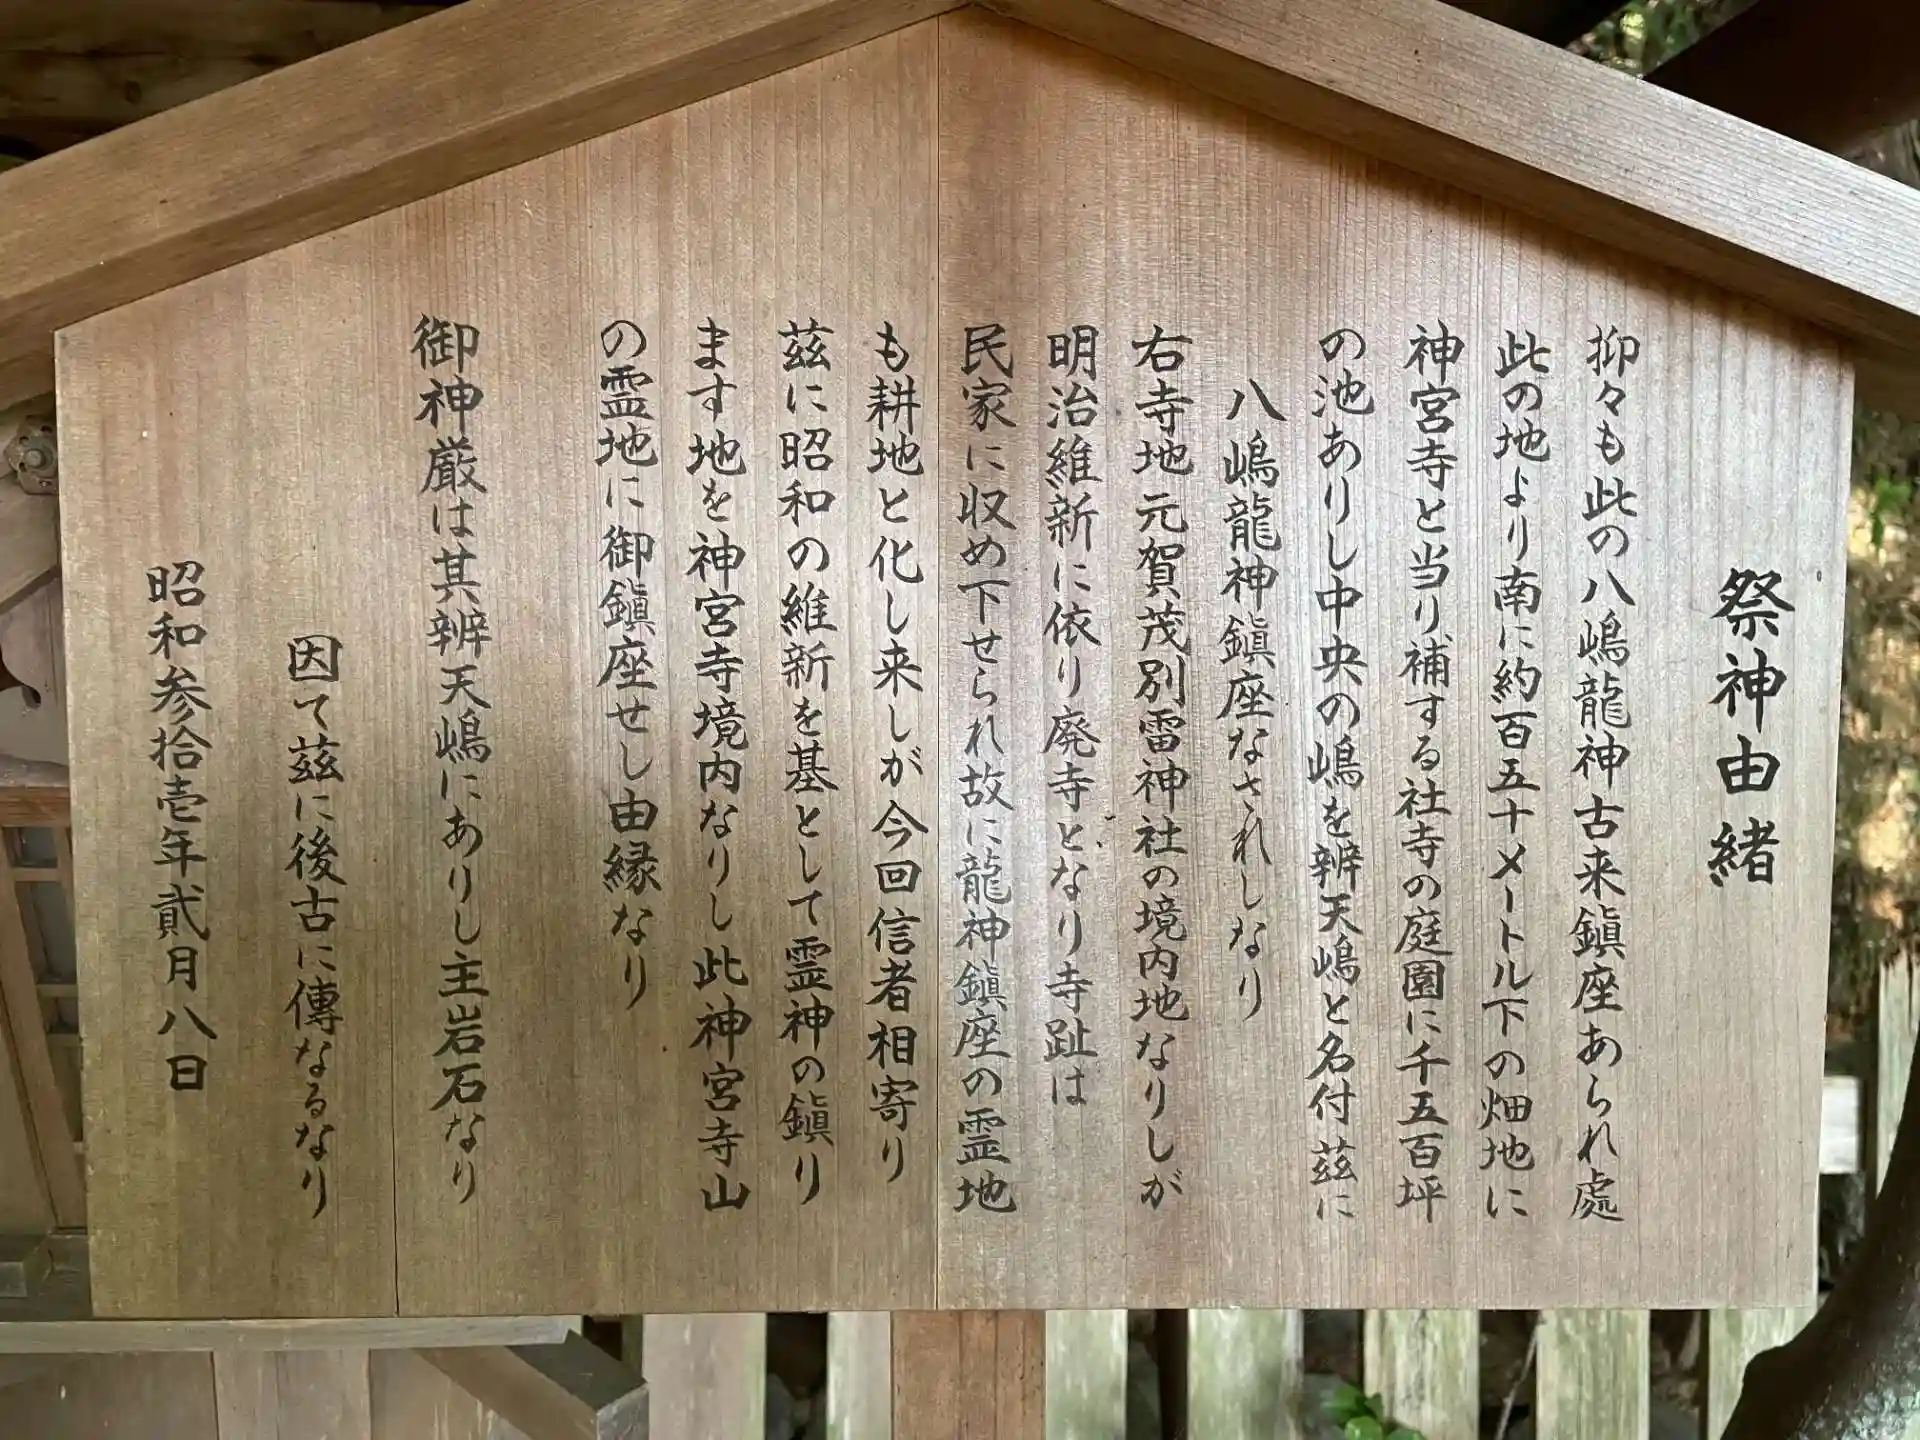 祭神由緒
抑々も此の八嶋龍神古来鎭座あられ處
此の地より南に約百五十メートル下の畑地に
神宮寺と当り補する社寺の庭園に千五百坪
の池ありし中央の嶋を辨天嶋と名付茲に
八嶋龍神鎭座なされしなり
右寺地元賀茂別雷神社の境内地なりしが
明治維新に依り廃寺となり寺趾は
民家に収め下せられ故に龍神鎭座の霊地
も耕地と化し来しが今回信者相寄り
茲に昭和の維新を基として霊神の鎭り
ます地を神宮寺境内なりし此神宮寺山
の霊地に御鎭座せし由縁なり
御神厳は其辨天嶋にありし主岩石なり
因て茲に後古に傳なるなり
昭和参拾壱年貳月八日